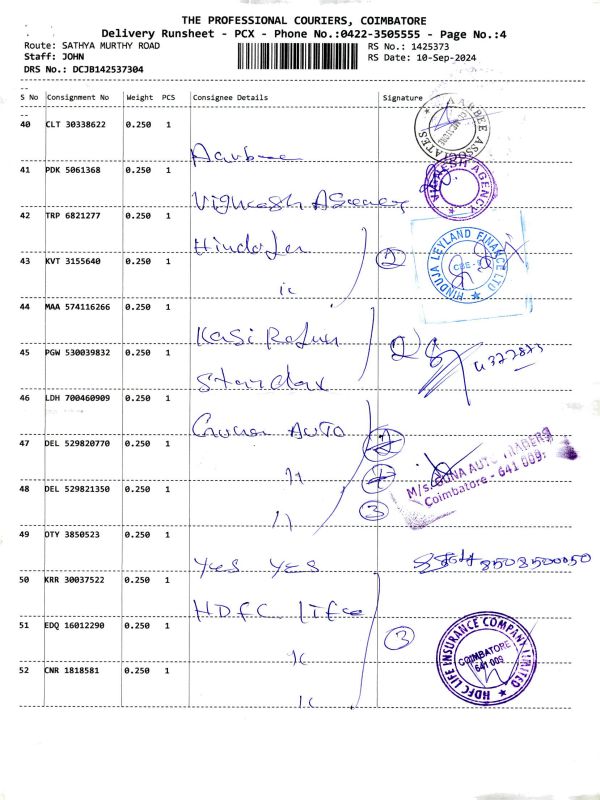 THE PROFESSIONAL COURIERS, COIMBATORE
Delivery Runsheet - PCX - Phone No.:0422-3505555 - Page No.:4
Route: SATHYA MURTHY ROAD
RS No.: 1425373
Staff: JOHN
RS Date: 10-Sep-2024
DRS No.: DCJB142537304
S No Consignment No Weight PCS Consignee Details Signature
40 CLT 30338622 0.250 1
AARBEE ASSOCIATES
Aarbee
41 PDK 5061368 0.250 1
VIGNESH AGENCY
Vignesh Agency
42 TRP 6821277 0.250 1
HINDUJA LEYLAND FINANCE LTD
CBE-9
43 KVT 3155640 0.250 1 2
44 MAA 574116266 0.250 1
Kasi
45 PGW 530039832 0.250 1 2
46 LDH 700460909 0.250 1
Guna AUTO
47 DEL 529820770 0.250 1
M/s. GUNA AUTO TRADERS
Coimbatore - 641 009.
48 DEL 529821350 0.250 1
3
49 OTY 3850523 0.250 1
YES YES 8508500050
50 KRR 30037522 0.250 1
HDFC life
51 EDQ 16012290 0.250 1 3
HDFC LIFE INSURANCE COMPANY LIMITED
COIMBATORE
641 009
52 CNR 1818581 0.250 1